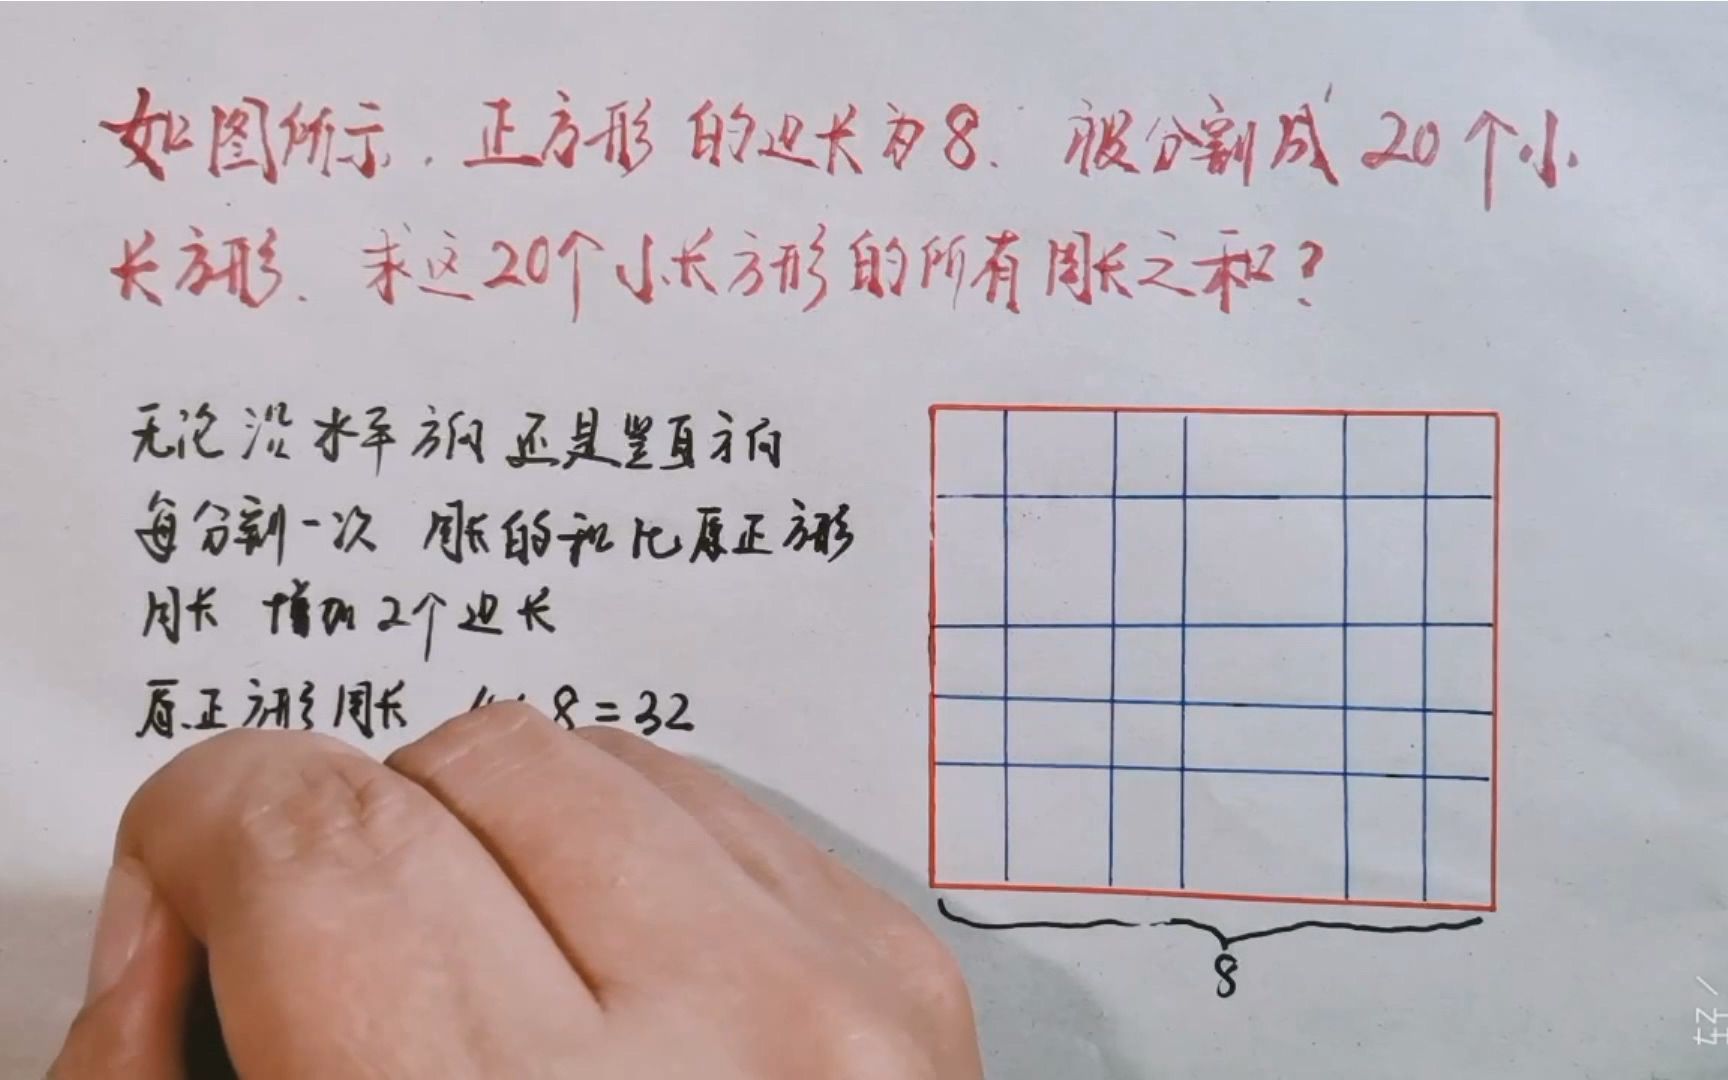 如图所示，正方形的边长为8. 被分割成20个小
长方形. 求这20个小长方形的所有周长之和?
无论沿水平方向还是竖直方向
每分割一次 周长的和比原正方形
周长 增加2个边长
原正方形周长 8=32
8